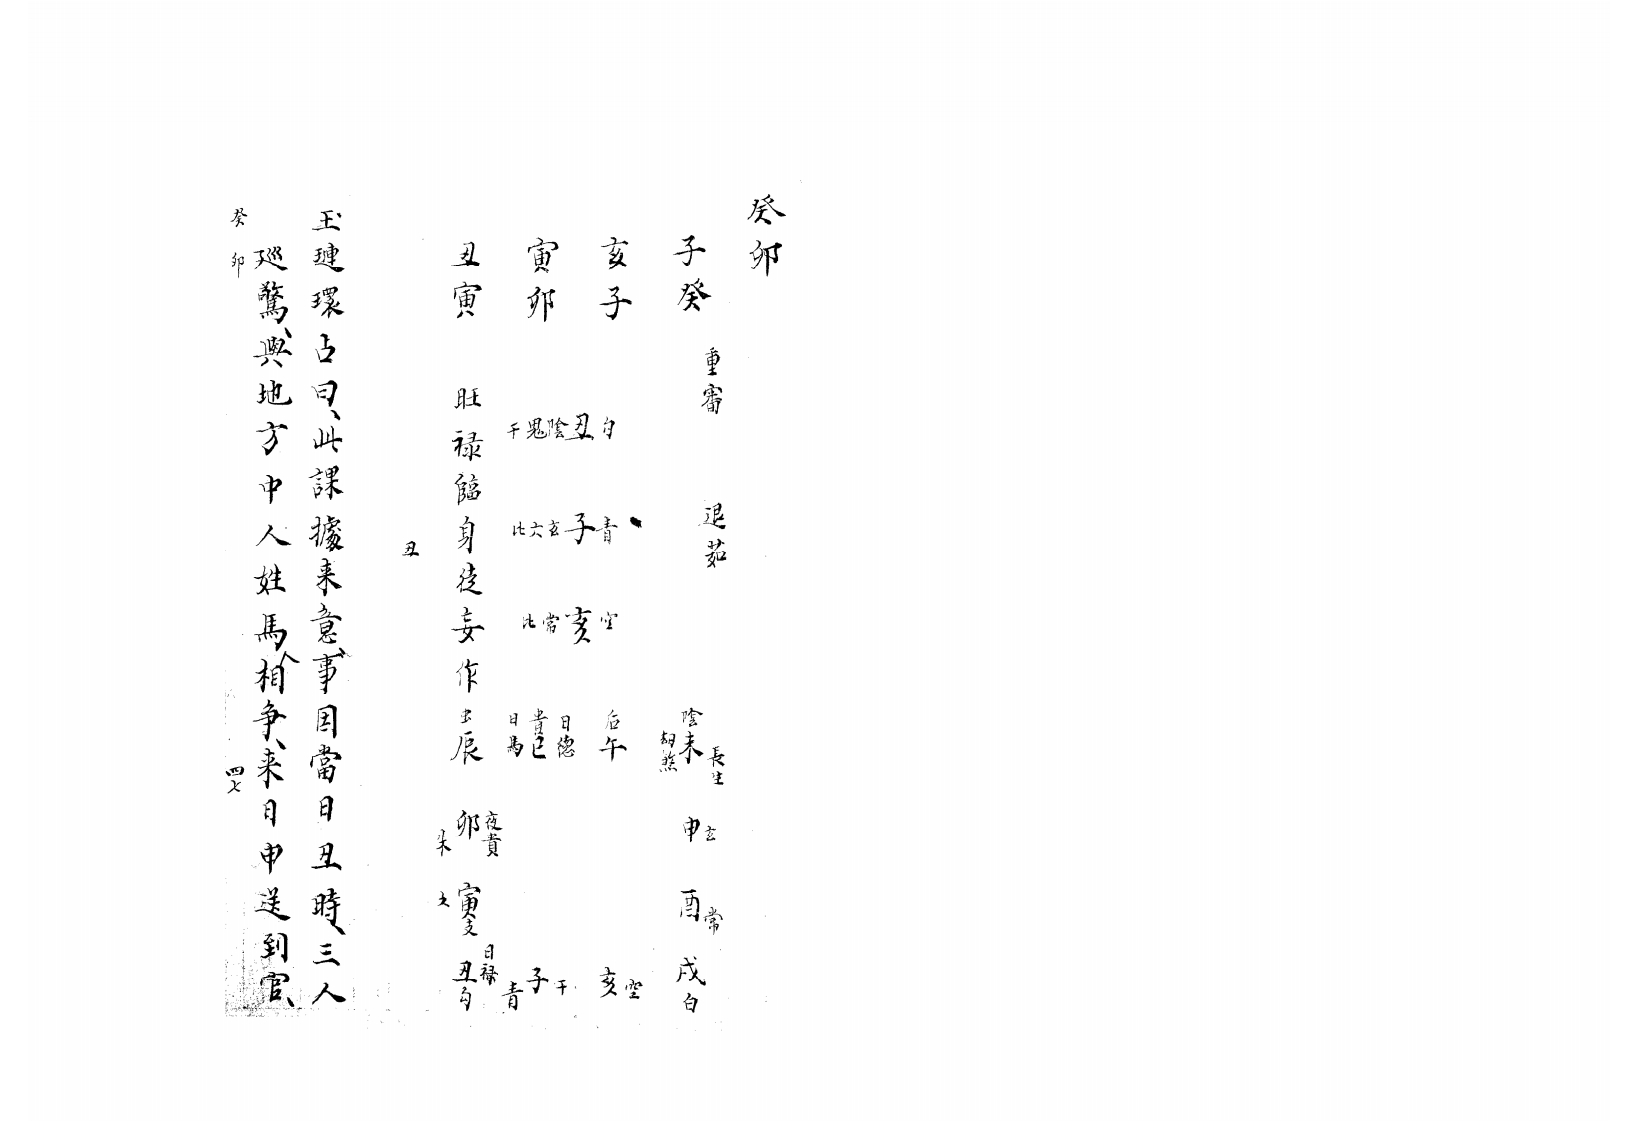 癸卯
子癸
亥子
寅卯
丑寅
重審
退茹
勾丑陰鬼干
青子玄六比
空亥常比
旺祿臨身徒妄作
丑
陰未長生
劫煞
申玄
酉常
戌白
后午
亥空
日德
貴巳
日馬
子干
青
辰
夜貴
卯朱
寅支
日祿
丑勾
玉璉環占曰、此課據来意、事因當日丑時、三人
廵驚、與地方中人姓馬人相争、来日申送到官、
癸卯
四七